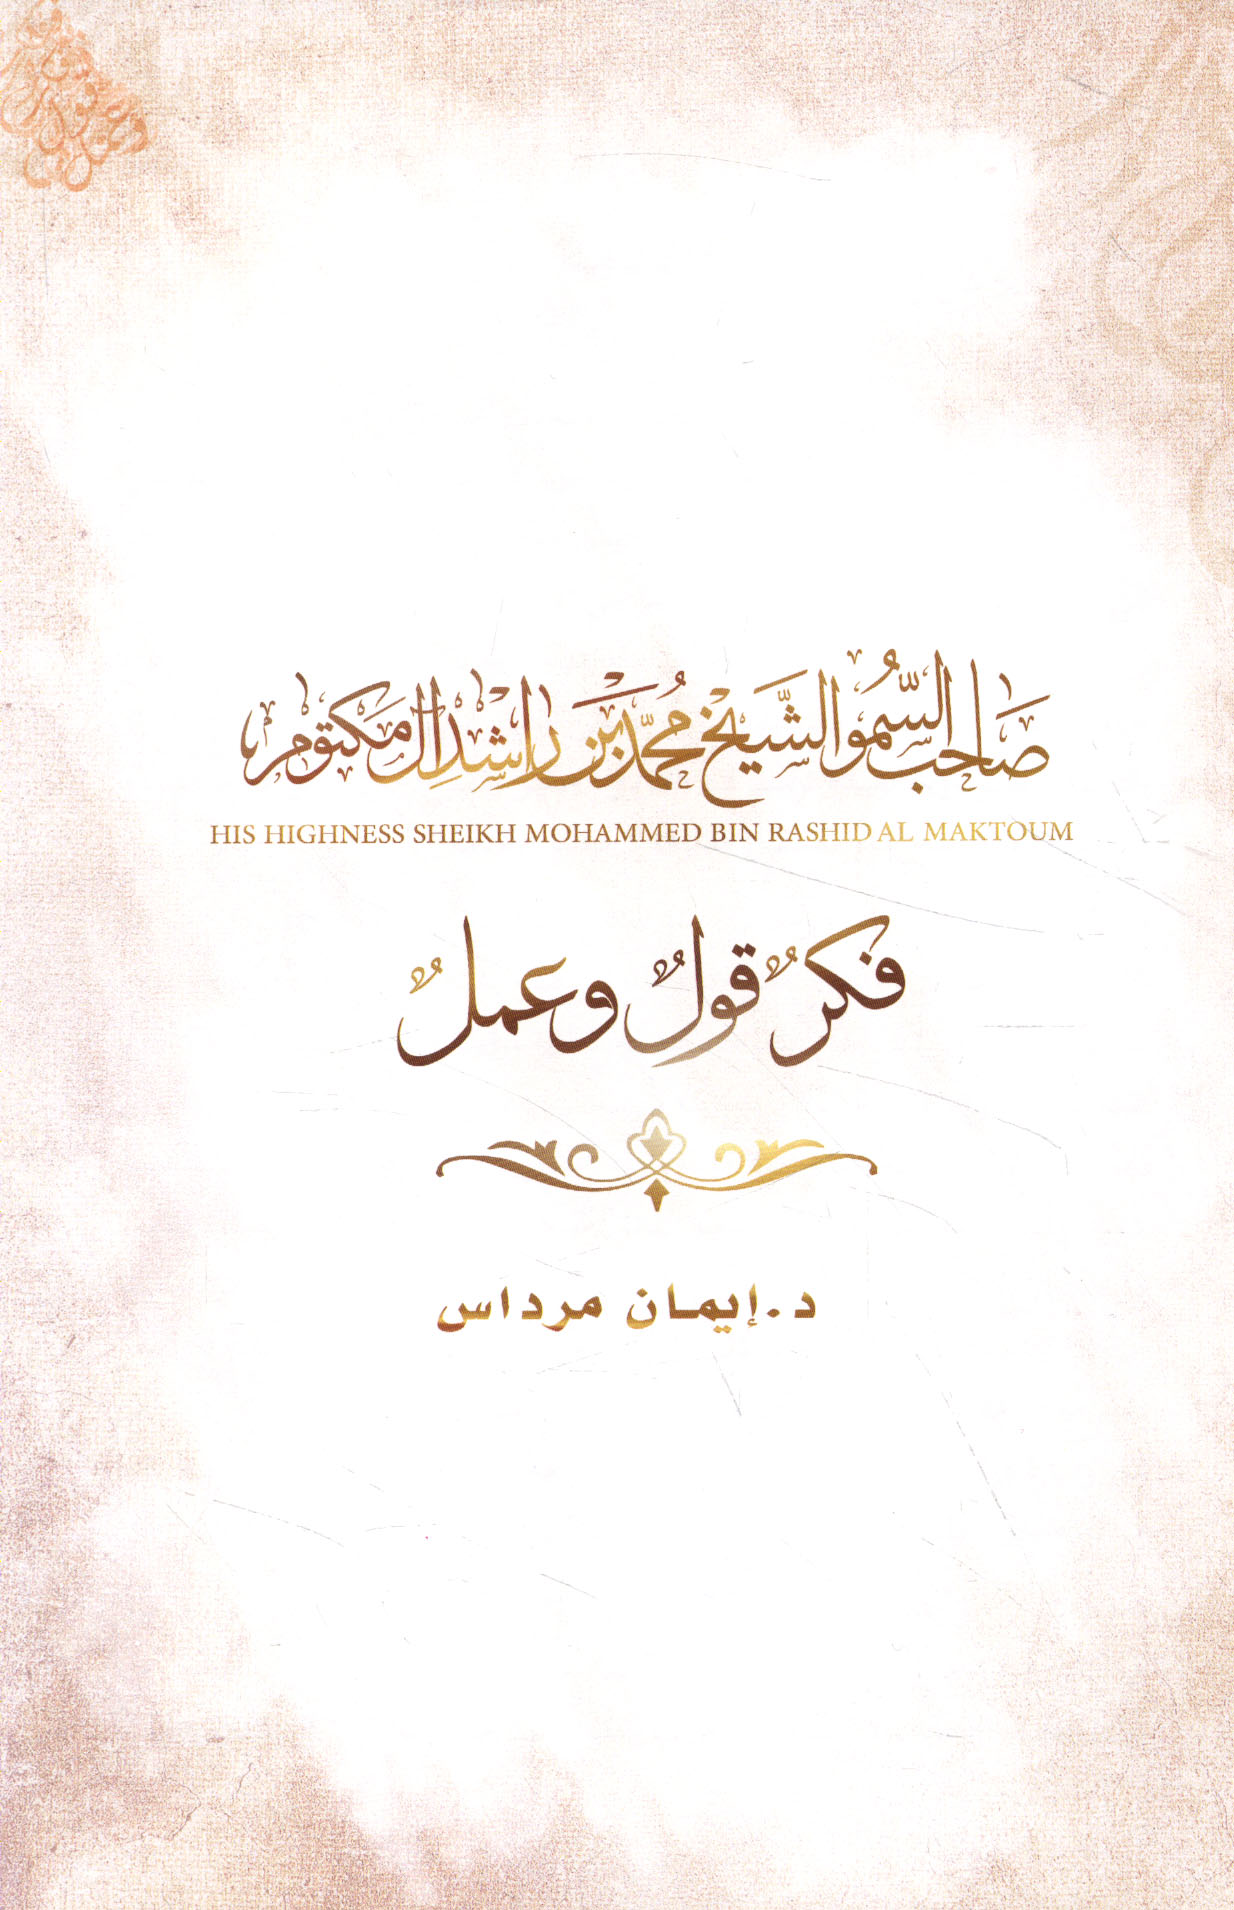 صاحب السمو الشيخ محمد بن راشد آل مكتوم
HIS HIGHNESS SHEIKH MOHAMMED BIN RASHID AL MAKTOUM
فكرٌ قولٌ وعملٌ
د.إيمان مرداس